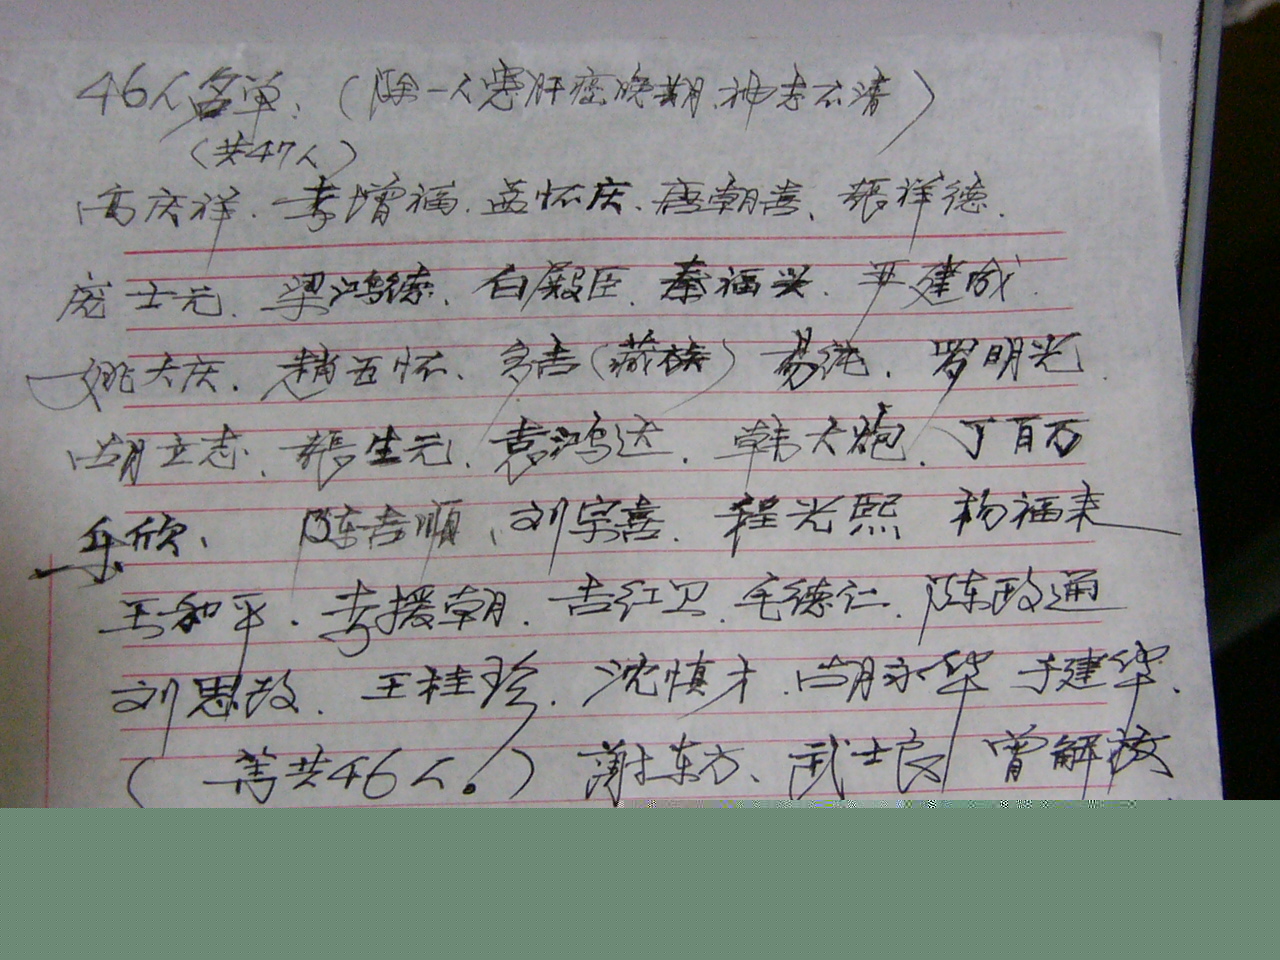 46人名单：（除一人患肝癌晚期.神志不清）
（共47人）
高庆祥.李增福.孟怀庆.唐朝喜、张祥德.
庞士元.梁鸿德.白殿臣.秦福兴.严建成.
姚大庆.赵五怀、多吉（藏族）易纯.罗明光.
胡立志.张生元.袁鸿达.韩大炮.丁百万
乐欣、陈吉顺、刘宗喜.程光熙 杨福来
王和平.李援朝.吉红卫.毛德仁.陈政通
刘思政.王桂珍.沈慎才.胡永华 于建华.
（等共46人。）谢东方、武士良 曾解放